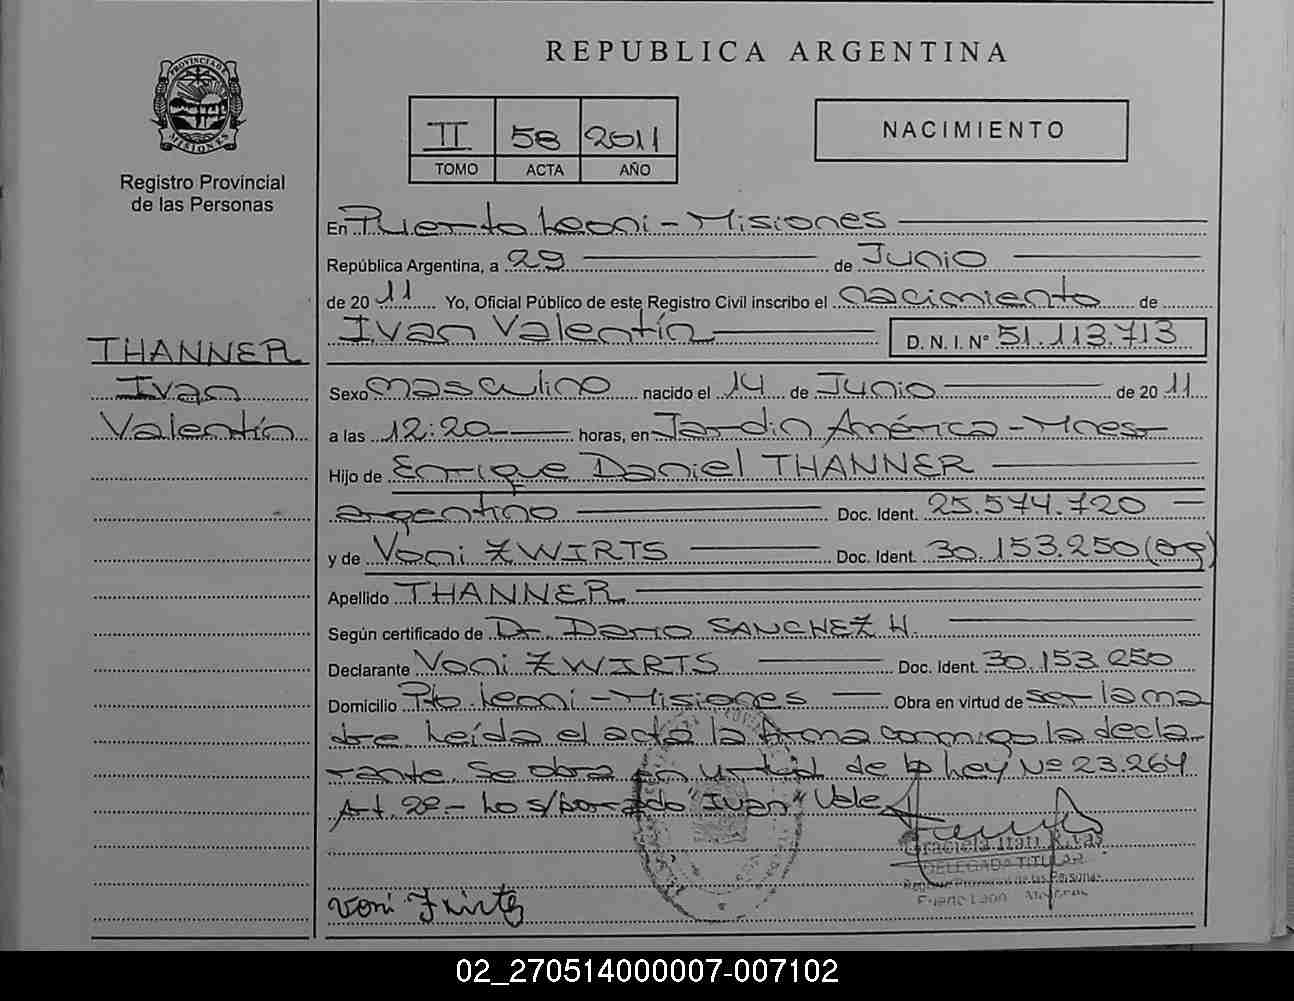 REPUBLICA ARGENTINA
PROVINCIA DE MISIONES
Registro Provincial
de las Personas
II 58 2011
TOMO ACTA AÑO
NACIMIENTO
En Puerto Leoni - Misiones
República Argentina, a 29 de Junio
de 2011 Yo, Oficial Público de este Registro Civil inscribo el nacimiento de
Ivan Valentín D. N. I. N° 51.113.713
THANNER
Ivan
Valentín
Sexo masculino nacido el 14 de Junio de 2011
a las 12:20 horas, en Jardin América - Mnes
Hijo de Enrique Daniel THANNER
argentino Doc. Ident. 25.574.720
y de Voni ZWIRTS Doc. Ident. 30.153.250 (arg)
Apellido THANNER
Según certificado de Dr. Dario SANCHEZ H.
Declarante Voni ZWIRTS Doc. Ident. 30.153.250
Domicilio Pto. Leoni - Misiones Obra en virtud de ser la ma
dre. Leída el acta la firma conmigo la decla
rante. Se obra en virtud de la Ley Nº 23.264
Art. 2º.- Lo s/borrado "Ivan" Vale
DELEGADA TITULAR
Registro Provincial de las Personas
Puerto Leoni Misiones
Voni
02_270514000007-007102